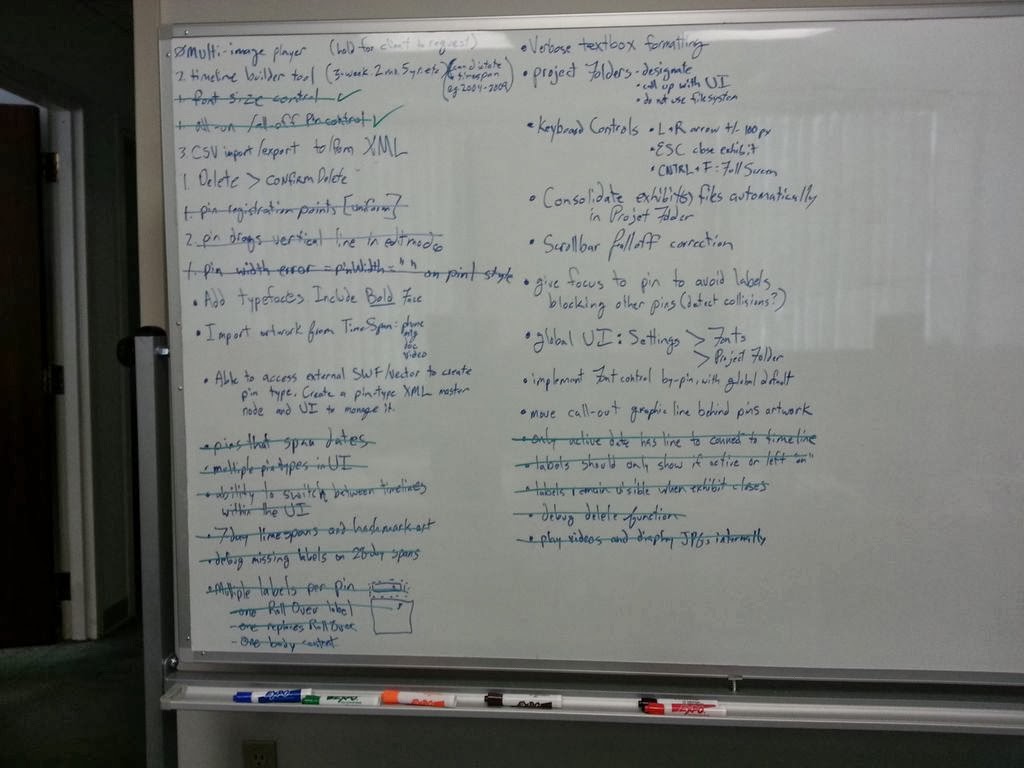 0 multi-image player (hold for client to request)
2. timeline builder tool (3-week. 2 mo. 5 yr. etc) (can dictate
timespan
eg. 2004-2009)
1. font size control ✓
1. all-on / all off Pin control ✓
3. CSV import/export to/from XML
1. Delete > confirm Delete
1. pin registration points [uniform]
2. pin drags vertical line in edit mode
1. pin width error = pinWidth=" " on pin1 style
• Add typefaces Include Bold Face
• Import artwork from TimeSpan: phone
img
doc
video
• Able to access external SWF/vector to create
pin type. Create a pin-type XML master
node and UI to manage it.
• pins that span dates
• multiple pin types in UI
• ability to switch between timelines
within the UI
• 7 day timespans and hashmark art
• debug missing labels on 28 day spans
• Multiple labels per pin
- one Roll Over label
- one replaces Roll Over
- One body content
• Verbose textbox formatting
• project folders - designate
• call up with UI
• do not use filesystem
• Keyboard Controls • L+R arrow +/- 100 px
• ESC close exhibit
• CNTRL + F: Full Screen
• Consolidate exhibit(s) files automatically
in Projet Folder
• Scrollbar falloff correction
• give focus to pin to avoid labels
blocking other pins (detect collisions?)
• global UI: Settings > Fonts
> Project Folder
• implement Font control by-pin, with global default
• move call-out graphic line behind pins artwork
• only active date has line to connect to timeline
• labels should only show if active or left "on"
• labels remain visible when exhibit closes
• debug delete function
• play videos and display JPGs internally